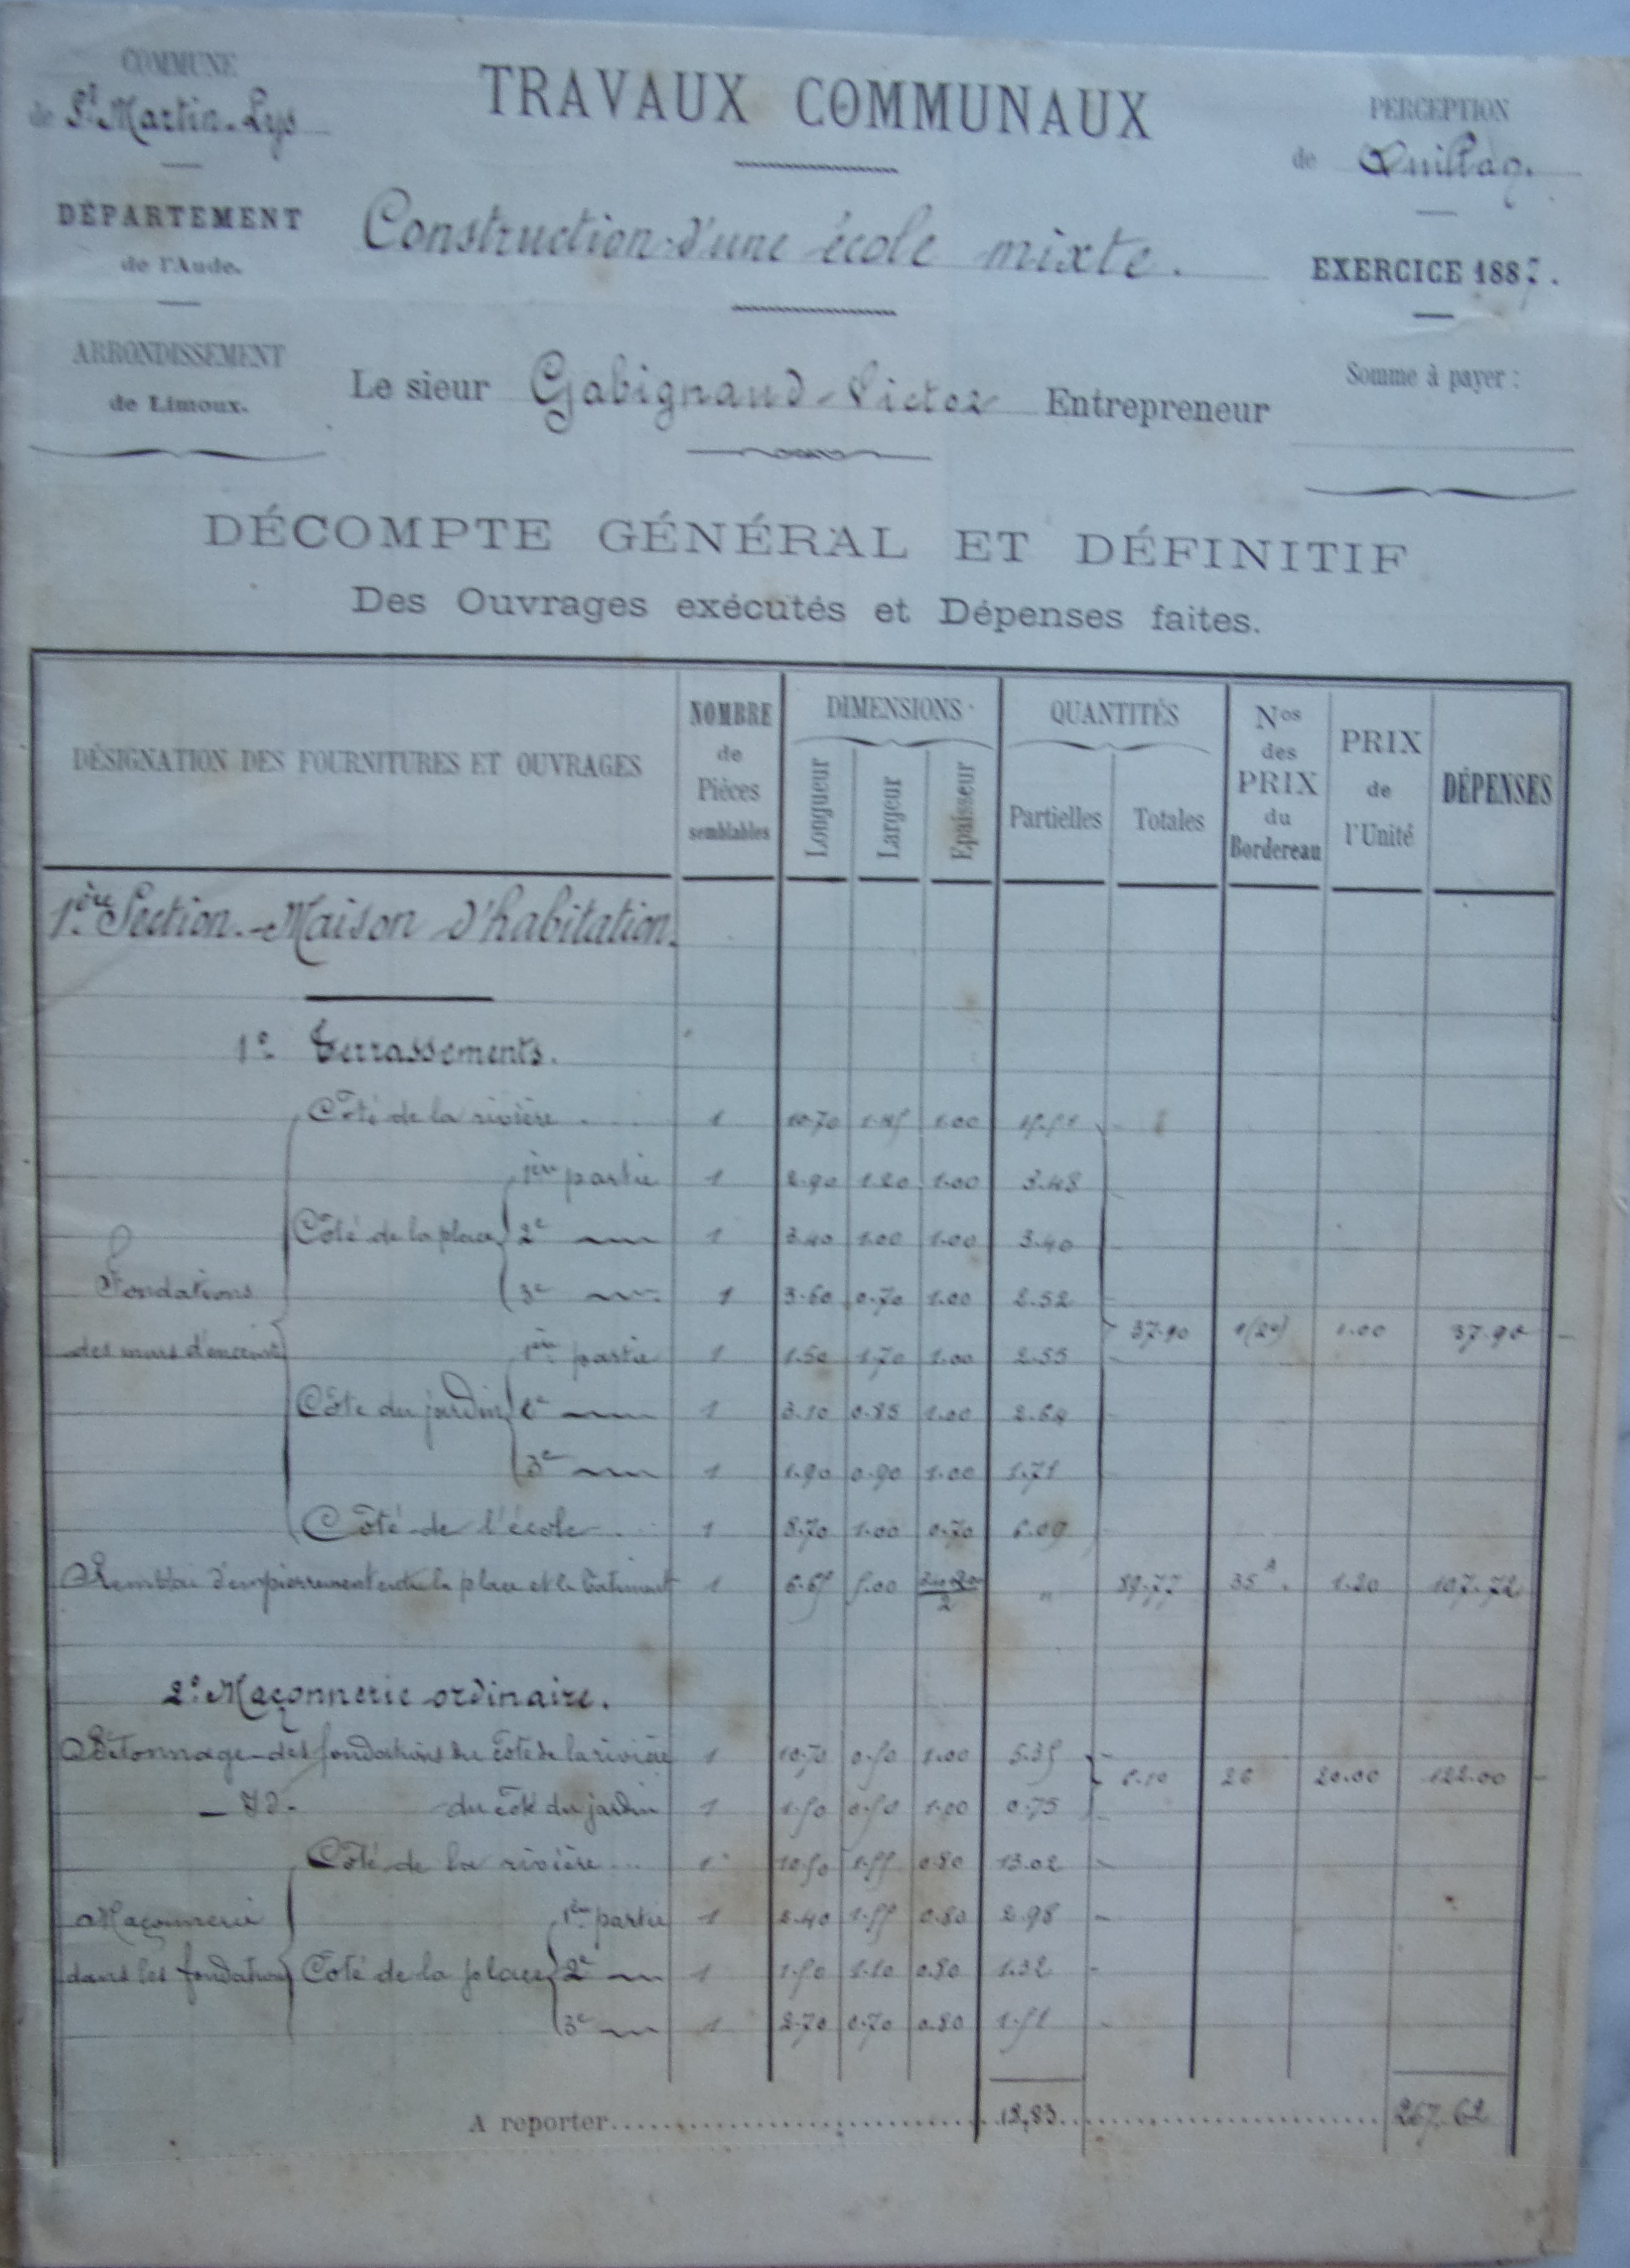 COMMUNE
de St Martin-Lys
DÉPARTEMENT
de l'Aude.
ARRONDISSEMENT
de Limoux.
TRAVAUX COMMUNAUX
Construction d'une école mixte.
Le sieur Gabignaud-Victor Entrepreneur
PERCEPTION
de Quillan.
EXERCICE 1887.
Somme à payer :
DÉCOMPTE GÉNÉRAL ET DÉFINITIF
Des Ouvrages exécutés et Dépenses faites.
DÉSIGNATION DES FOURNITURES ET OUVRAGES
NOMBRE
de
Pièces
semblables
DIMENSIONS
Longueur
Largeur
Epaisseur
QUANTITÉS
Partielles
Totales
Nos
des
PRIX
du
Bordereau
PRIX
de
l'Unité
DÉPENSES
1ère Section.-Maison d'habitation.
1° Terrassements.
Côté de la rivière 1 10.70 1.45 1.00 15.51
1ère partie 1 2.90 1.20 1.00 3.48
Côté de la place 2e 1 3.40 1.00 1.00 3.40
Fondations 3e 1 3.60 0.70 1.00 2.52
37.90 1(2°) 1.00 37.90
des murs d'enceinte 1ère partie 1 1.50 1.70 1.00 2.55
Côté du jardin 2e 1 3.10 0.85 1.00 2.64
3e 1 1.90 0.90 1.00 1.71
Côté de l'école 1 8.70 1.00 0.70 6.09
Remblai d'empierrement entre la place et le bâtiment 1 6.65 5.00 2 " 89.77 35 A. 1.20 107.72
2° Maçonnerie ordinaire.
Bétonnage des fondations du côté de la rivière 1 10.70 0.50 1.00 5.35
6.10 26 20.00 122.00
Id. du côté du jardin 1 1.50 0.50 1.00 0.75
Côté de la rivière 1 10.50 1.55 0.80 13.02
Maçonnerie 1ère partie 1 2.40 1.55 0.80 2.98
dans les fondations Côté de la place 2e 1 1.50 1.10 0.80 1.32
3e 1 2.70 0.70 0.80 1.51
A reporter 18,83 267.62